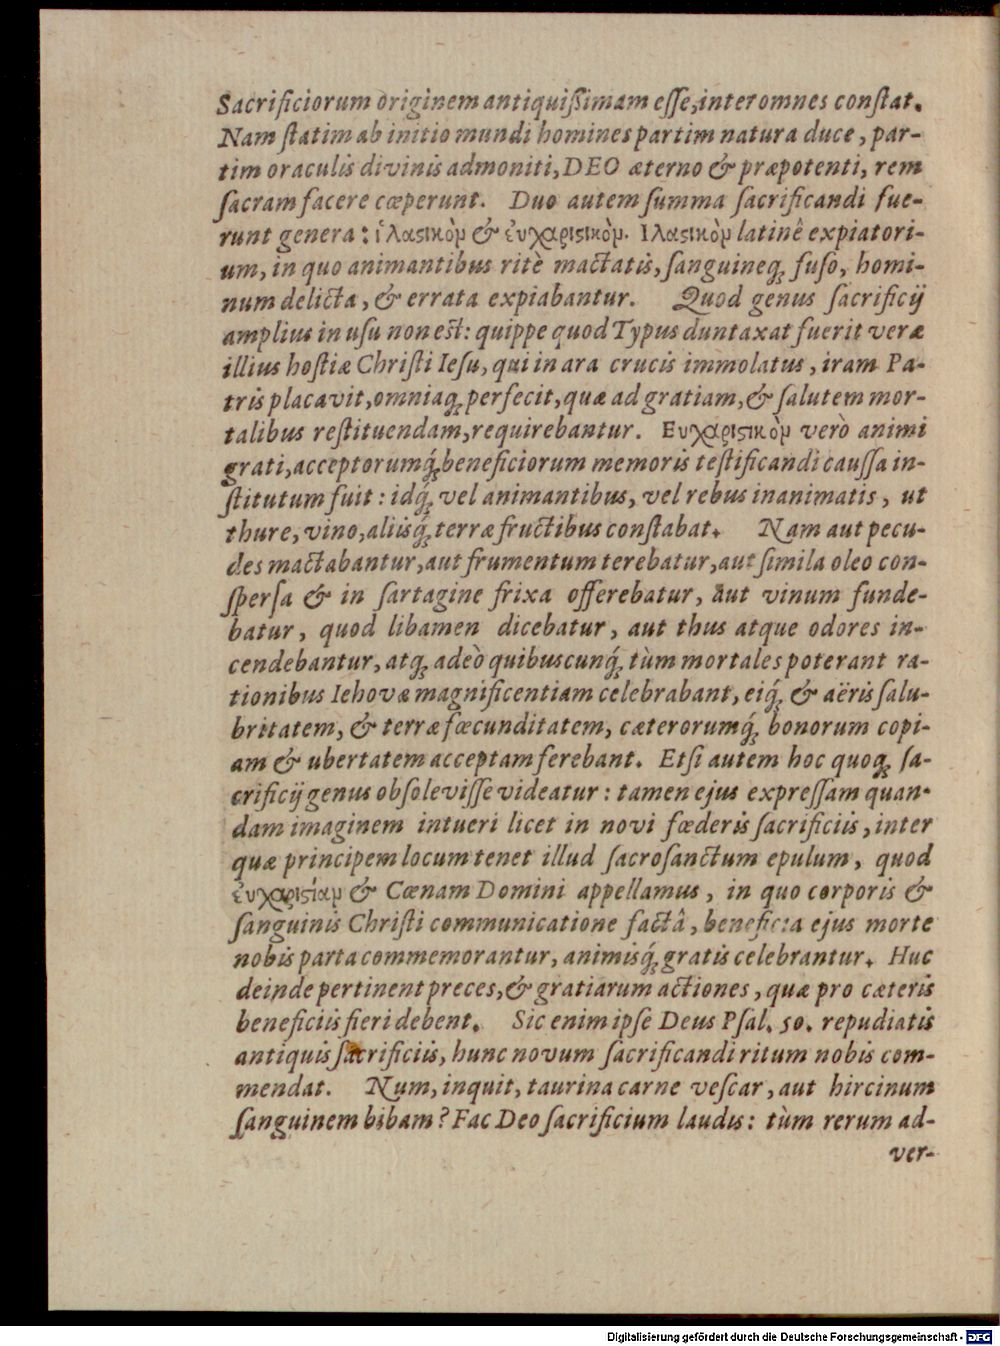 Sacrificiorum originem antiquißimam eſſe,inter omnes conſtat.
Nam ſtatim ab initio mundi homines partim natura duce, par-
tim oraculis divinis admoniti, DEO æterno & præpotenti, rem
ſacram facere cœperunt. Duo autem ſumma ſacrificandi fue-
runt genera: ἱλαϛικὸμ & ἐυχαριϛικὸμ. Ιλαϛικὸμ latinê expiatori-
um, in quo animantibus ritè mactatis, ſanguineq; fuſo, homi-
num delicta, & errata expiabantur. Quod genus ſacrificij
amplius in uſu non est: quippe quod Typus duntaxat fuerit veræ
illius hoſtiæ Chriſti Ieſu, qui in ara crucis immolatus, iram Pa-
tris placavit, omniaq; perfecit, quæ ad gratiam, & ſalutem mor-
talibus reſtituendam, requirebantur. Ευχαριϛικὸμ verò animi
grati, acceptorumq́; beneficiorum memoris teſtificandi cauſſa in-
ſtitutum fuit: idq́; vel animantibus, vel rebus inanimatis, ut
thure, vino, aliisq́; terræ fructibus conſtabat. Nam aut pecu-
des mactabantur, aut frumentum terebatur, aut ſimila oleo con-
ſperſa & in ſartagine frixa offerebatur, aut vinum funde-
batur, quod libamen dicebatur, aut thus atque odores in-
cendebantur, atq; adeò quibuscunq́; tùm mortales poterant ra-
tionibus Iehovæ magnificentiam celebrabant, eiq́; & aëris ſalu-
britatem, & terræ fœcunditatem, cæterorumq́; bonorum copi-
am & ubertatem acceptam ferebant. Etſi autem hoc quoq; ſa-
crificij genus obſoleviſſe videatur: tamen ejus expreſſam quan-
dam imaginem intueri licet in novi fœderis ſacrificiis, inter
quæ principem locum tenet illud ſacroſanctum epulum, quod
ἐυχαριϛίαμ & Cœnam Domini appellamus, in quo corporis &
ſanguinis Chriſti communicatione factâ, beneficia ejus morte
nobis parta commemorantur, animisq́; gratis celebrantur. Huc
deinde pertinent preces, & gratiarum actiones, quæ pro cæteris
beneficiis fieri debent. Sic enim ipſe Deus Pſal. 50. repudiatis
antiquis ſacrificiis, hunc novum ſacrificandi ritum nobis com-
mendat. Num, inquit, taurina carne veſcar, aut hircinum
ſanguinem bibam? Fac Deo ſacrificium laudis: tùm rerum ad-
ver-
Digitalisierung gefördert durch die Deutsche Forschungsgemeinschaft - DFG